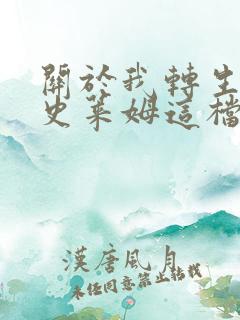 關於我轉生
史萊姆這檔
漢唐風月
未經同意禁止轉載